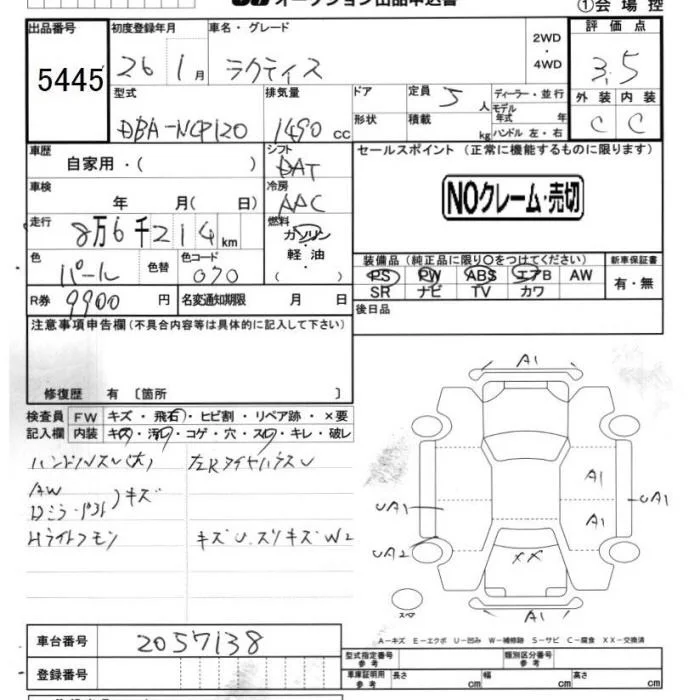 オークション出品申込書 ①会場控
出品番号 初度登録年月 車名・グレード 2WD・4WD 評価点
5445 26年1月 ラクティス 3.5
型式 排気量 ドア 定員 5人 ディーラー・並行 外装 内装
DBA-NCP120 1490cc 形状 積載 kg モデル年式 年 ハンドル 左・右 C C
車歴 自家用・( ) シフト DAT セールスポイント (正常に機能するものに限ります)
車検 年 月( 日) 冷房 AAC NOクレーム・売切
走行 8万6千214km 燃料 ガソリン・軽油・( )
色 パール 色替 色コード 070 装備品 (純正品に限り○をつけてください) 新車保証書
PS PW ABS エアB AW 有・無
SR ナビ TV カワ
R券 9900円 名変通知期限 月 日 後日品
注意事項申告欄(不具合内容等は具体的に記入して下さい)
修復歴 有 〔箇所 〕
検査員 FW キズ・飛石・ヒビ割・リペア跡・×要
記入欄 内装 キズ・汚れ・コゲ・穴・スレ・キレ・破レ
ハンドルスレ(大) 左RタイヤハウスU
AW
Dミラー・ドア )キズ
Hライトクモリ キズU.スリキズW2
A1
A1
UA1 A1 UA1
UA2 XX
スペ A1
A-キズ E-エクボ U-凹み W-補修跡 S-サビ C-腐食 XX-交換済
車台番号 2057138
型式指定番号 参考 類別区分番号 参考
登録番号 車庫証明用 参考 長さ cm 幅 cm 高さ cm